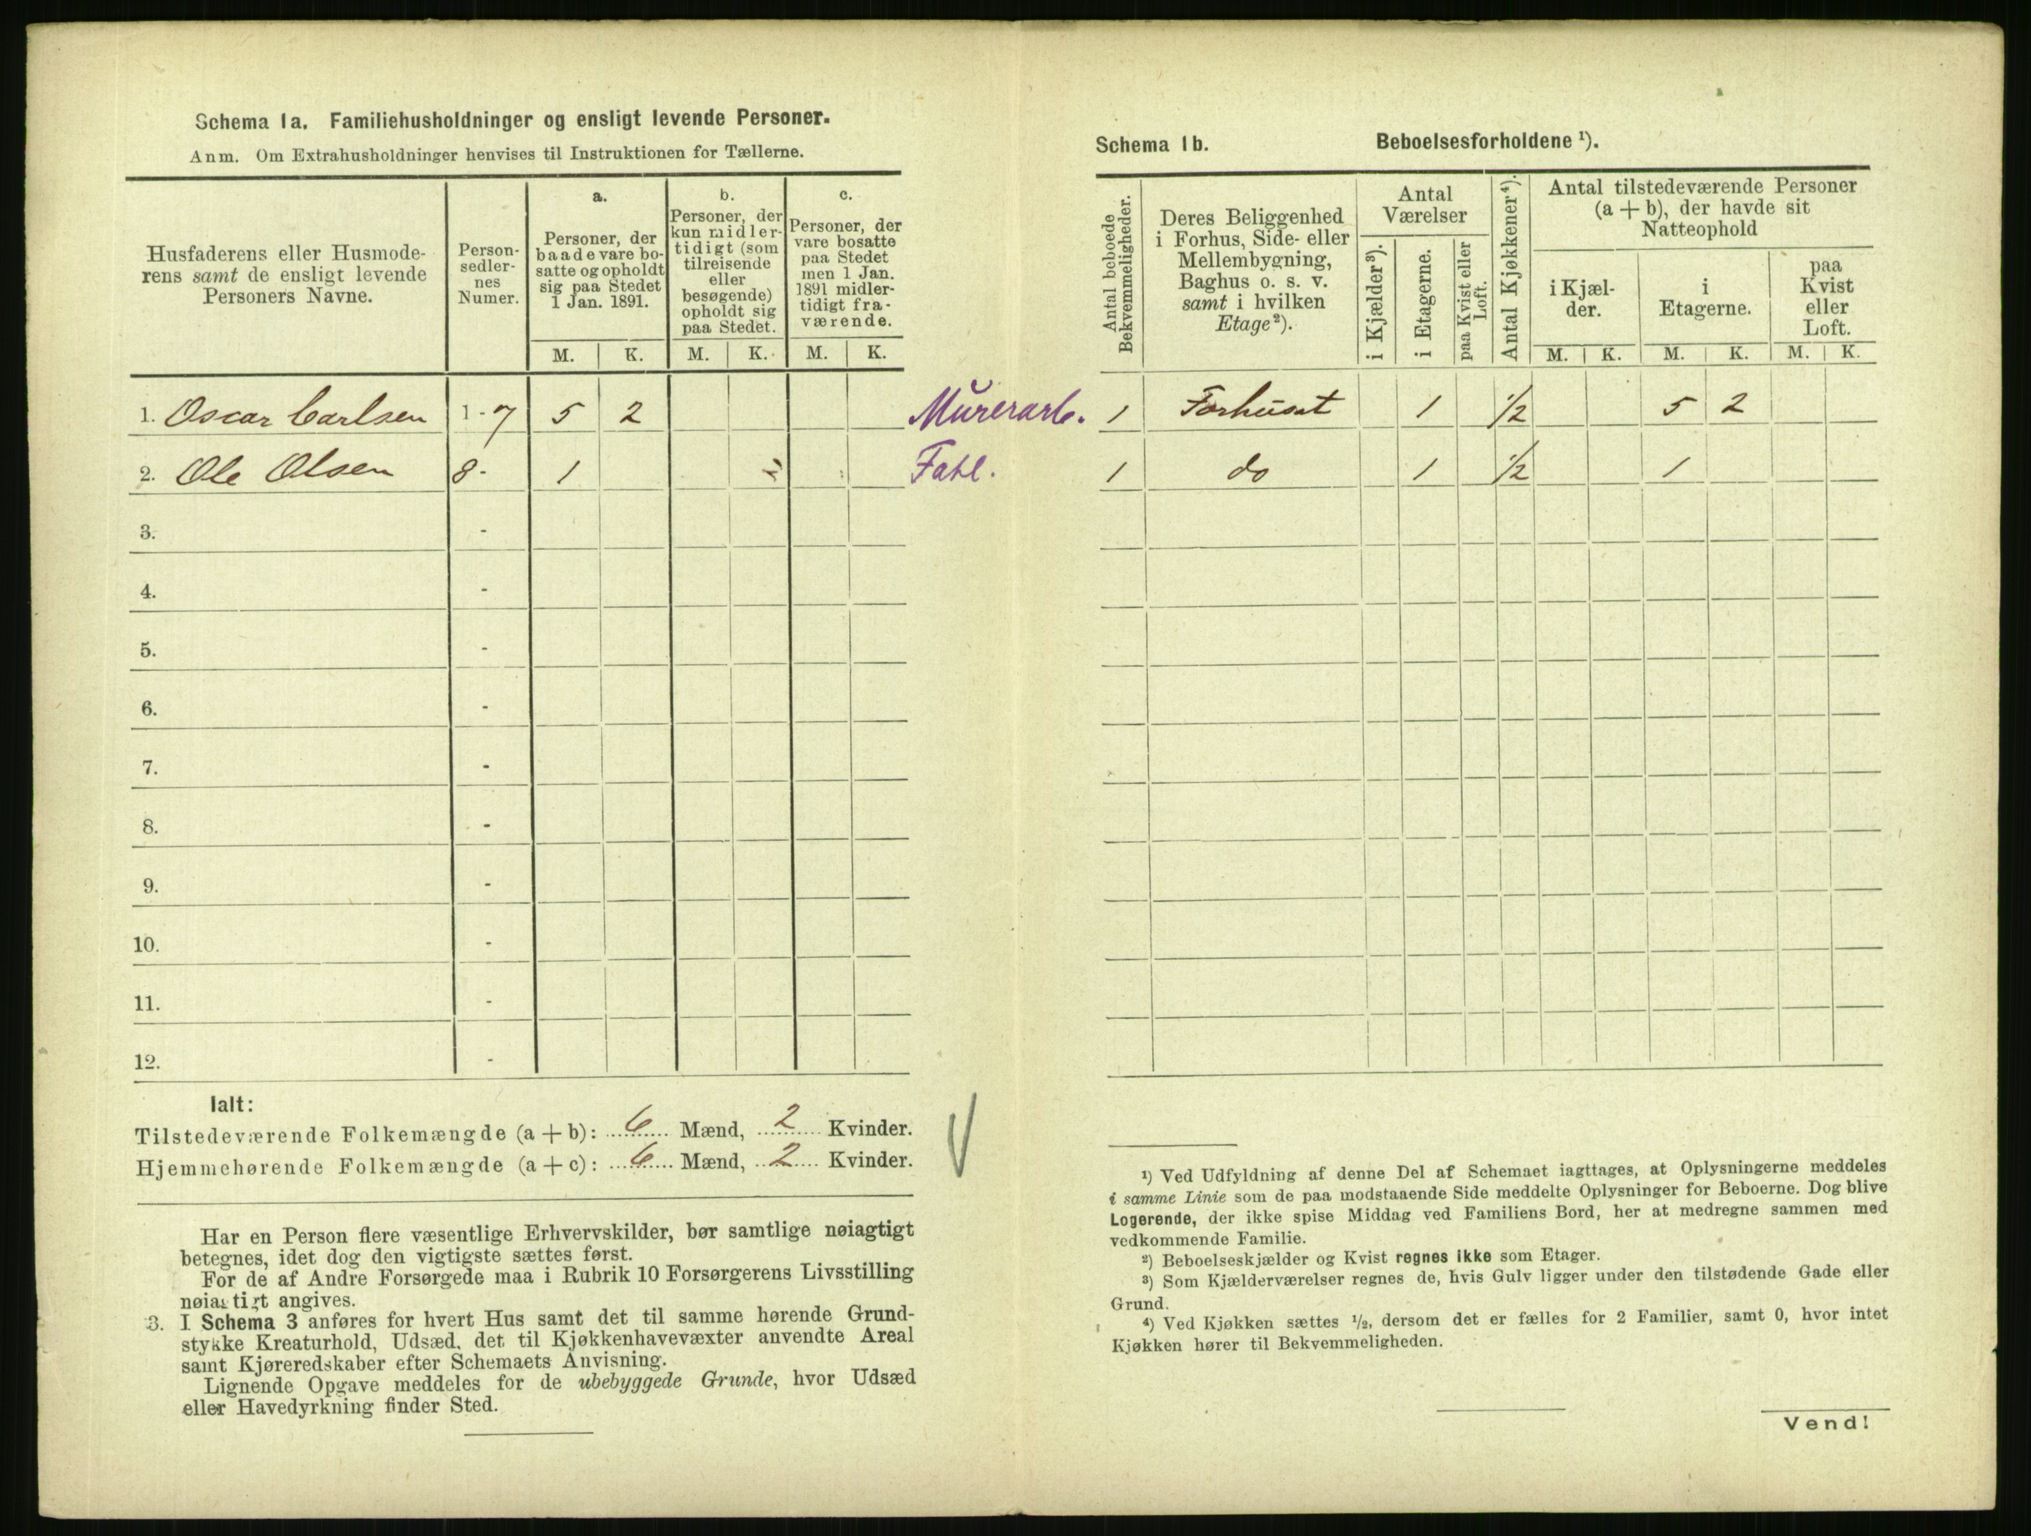 Schema 1a. Familiehusholdninger og ensligt levende Personer.
Anm. Om Extrahusholdninger henvises til Instruktionen for Tællerne.
Husfaderens eller Husmode-
rens samt de ensligt levende
Personers Navne.
Person-
sedler-
nes
Numer.
a.
Personer, der
baade vare bo-
satte og opholdt
sig paa Stedet
1 Jan. 1891.
b.
Personer, der
kun midler-
tidigt (som
tilreisende
eller
besøgende)
opholdt sig
paa Stedet.
c.
Personer, der
vare bosatte
paa Stedet
men 1 Jan.
1891 midler-
tidigt fra-
værende.
M. K. M. K. M. K.
1. Oscar Carlsen 1-7 5 2 Murerarb.
2. Ole Olsen 8- 1 Fatl.
3. -
4. -
5. -
6. -
7. -
8. -
9. -
10. -
11. -
12. -
Ialt:
Tilstedeværende Folkemængde (a + b): 6 Mænd, 2 Kvinder.
Hjemmehørende Folkemængde (a + c): 6 Mænd, 2 Kvinder.
Har en Person flere væsentlige Erhvervskilder, bør samtlige nøiagtigt
betegnes, idet dog den vigtigste sættes først.
For de af Andre Forsørgede maa i Rubrik 10 Forsørgerens Livsstilling
nøiagtigt angives.
3. I Schema 3 anføres for hvert Hus samt det til samme hørende Grund-
stykke Kreaturhold, Udsæd, det til Kjøkkenhavevæxter anvendte Areal
samt Kjøreredskaber efter Schemaets Anvisning.
Lignende Opgave meddeles for de ubebyggede Grunde, hvor Udsæd
eller Havedyrkning finder Sted.
Schema 1b. Beboelsesforholdene ¹).
Antal beboede
Bekvemmeligheder.
Deres Beliggenhed
i Forhus, Side- eller
Mellembygning,
Baghus o. s. v.
samt i hvilken
Etage²).
Antal
Værelser
i Kjælder³).
i Etagerne.
paa Kvist eller
Loft.
Antal Kjøkkener⁴).
Antal tilstedeværende Personer
(a + b), der havde sit
Natteophold
i Kjæl-
der.
i
Etagerne.
paa
Kvist
eller
Loft.
M. K. M. K. M. K.
1 Forhuset 1 1/2 5 2
1 do 1 1/2 1
¹) Ved Udfyldning af denne Del af Schemaet iagttages, at Oplysningerne meddeles
i samme Linie som de paa modstaaende Side meddelte Oplysninger for Beboerne. Dog blive
Logerende, der ikke spise Middag ved Familiens Bord, her at medregne sammen med
vedkommende Familie.
²) Beboelseskjælder og Kvist regnes ikke som Etager.
³) Som Kjælderværelser regnes de, hvis Gulv ligger under den tilstødende Gade eller
Grund.
⁴) Ved Kjøkken sættes ½, dersom det er fælles for 2 Familier, samt 0, hvor intet
Kjøkken hører til Bekvemmeligheden.
Vend!